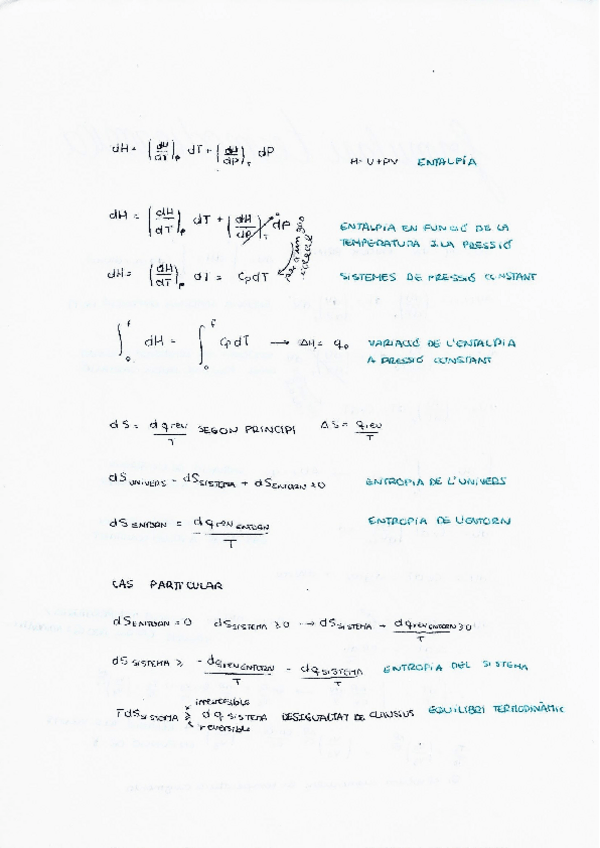 dH = (dH/dT)p dT + (dH/dP)T dP H = U+PV ENTALPÍA
dH = (dH/dT)p dT + (dH/dP)T dP ENTALPIA EN FUNCIÓ DE LA
TEMPERATURA I LA PRESSIÓ
per a un gas
ideal
dH = (dH/dT)p dT = Cp dT SISTEMES DE PRESSIÓ CONSTANT
∫ dH = ∫ Cp dT → ΔH = qp VARIACIÓ DE L'ENTALPIA
A PRESSIÓ CONSTANT
dS = dqrev/T SEGON PRINCIPI ΔS = qrev/T
dS UNIVERS = dS SISTEMA + dS ENTORN ≥ 0 ENTROPIA DE L'UNIVERS
dS ENTORN = dqrev ENTORN/T ENTROPIA DE L'ENTORN
CAS PARTICULAR
dS ENTORN = 0 dS SISTEMA ≥ 0 → dS SISTEMA - dqrev ENTORN/T ≥ 0
dS SISTEMA ≥ -dqrev ENTORN/T = dq SISTEMA/T ENTROPIA DEL SISTEMA
irreversible
TdS SISTEMA ≥ dq SISTEMA DESIGUALTAT DE CLAUSIUS EQUILIBRI TERMODINÀMIC
reversible